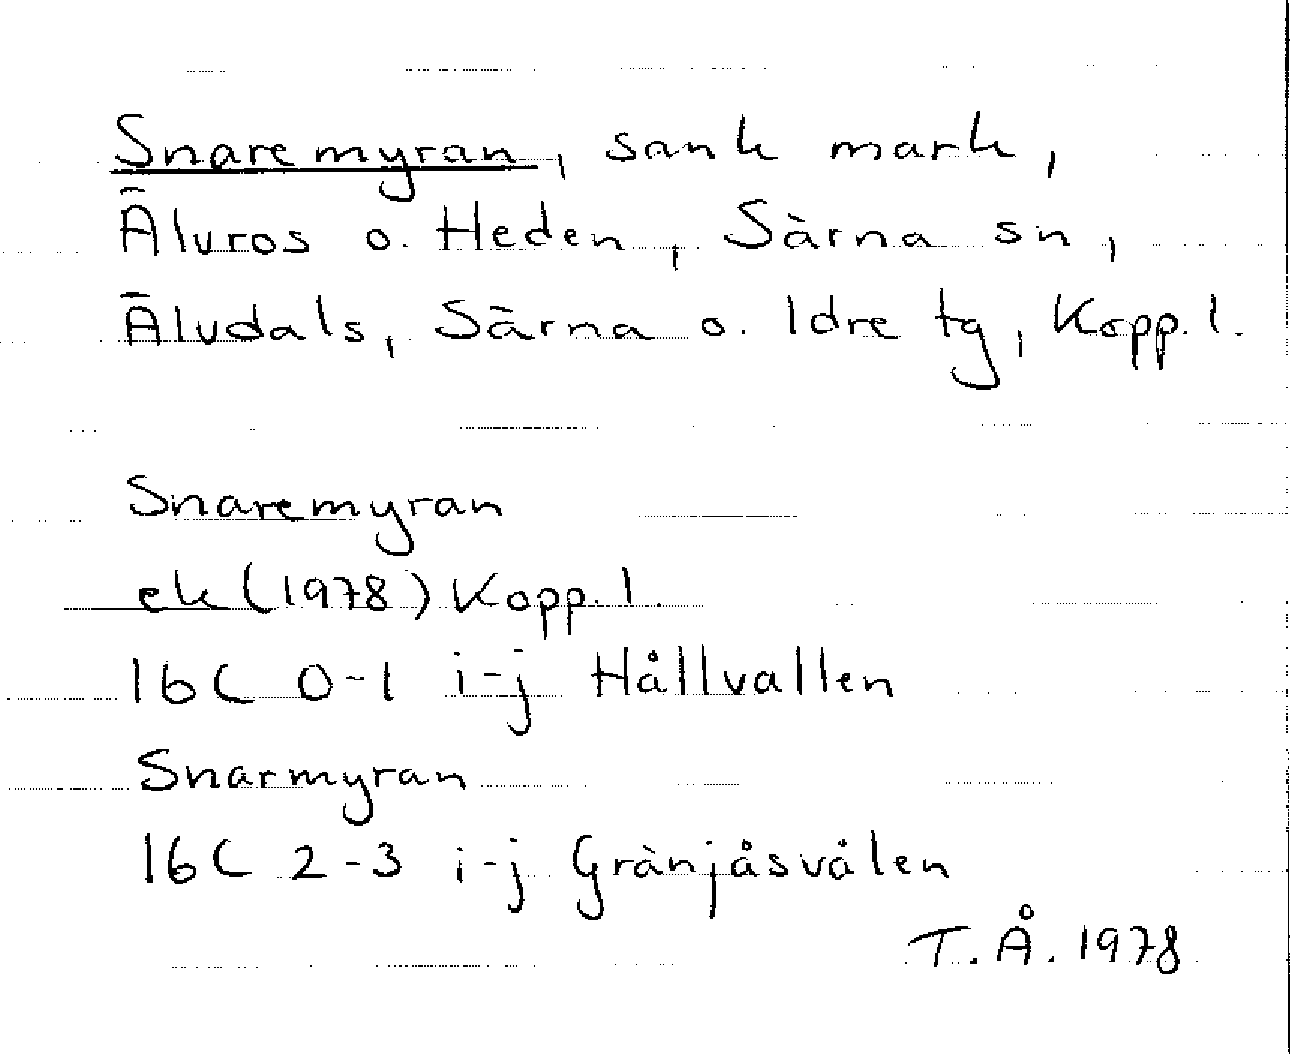 Snaremyran, sank mark,
Älvros o. Heden, Särna sn,
Älvdals, Särna o. Idre tg, Kopp. l.
Snaremyran
ek (1978) Kopp. l.
16C 0-1 i-j Hållvallen
Snarmyran
16C 2-3 i-j Gränjåsvålen
T.Å. 1978